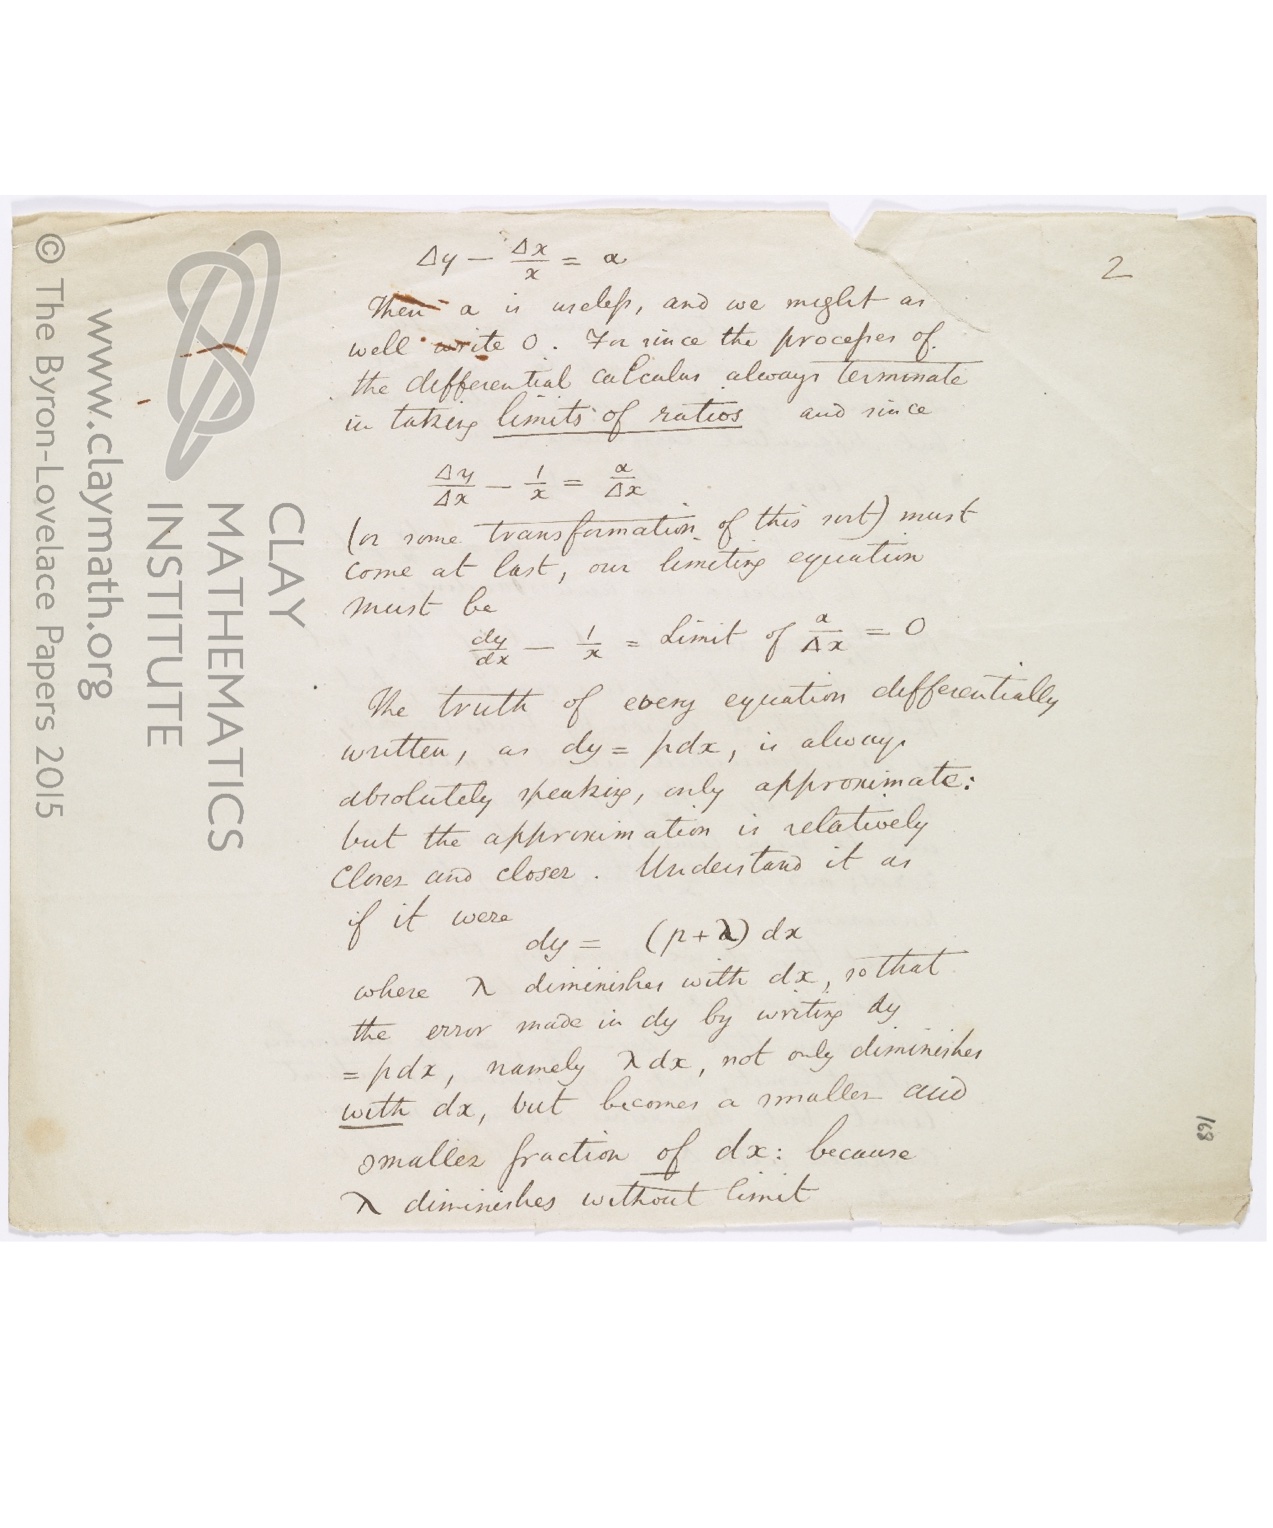 2
Δy − Δx/x = α
Then α is useless, and we might as
well write 0. For since the processes of
the differential calculus always terminate
in taking limits of ratios and since
Δy/Δx − 1/x = α/Δx
(or some transformation of this sort) must
come at last, our limiting equation
must be
dy/dx − 1/x = Limit of α/Δx = 0
The truth of every equation differentially
written, as dy = pdx, is always
absolutely speaking, only approximate:
but the approximation is relatively
closer and closer. Understand it as
if it were
dy = (p+λ) dx
where λ diminishes with dx, so that
the error made in dy by writing dy
= pdx, namely λdx, not only diminishes
with dx, but becomes a smaller and
smaller fraction of dx: because
λ diminishes without limit
168
CLAY
MATHEMATICS
INSTITUTE
www.claymath.org
© The Byron-Lovelace Papers 2015